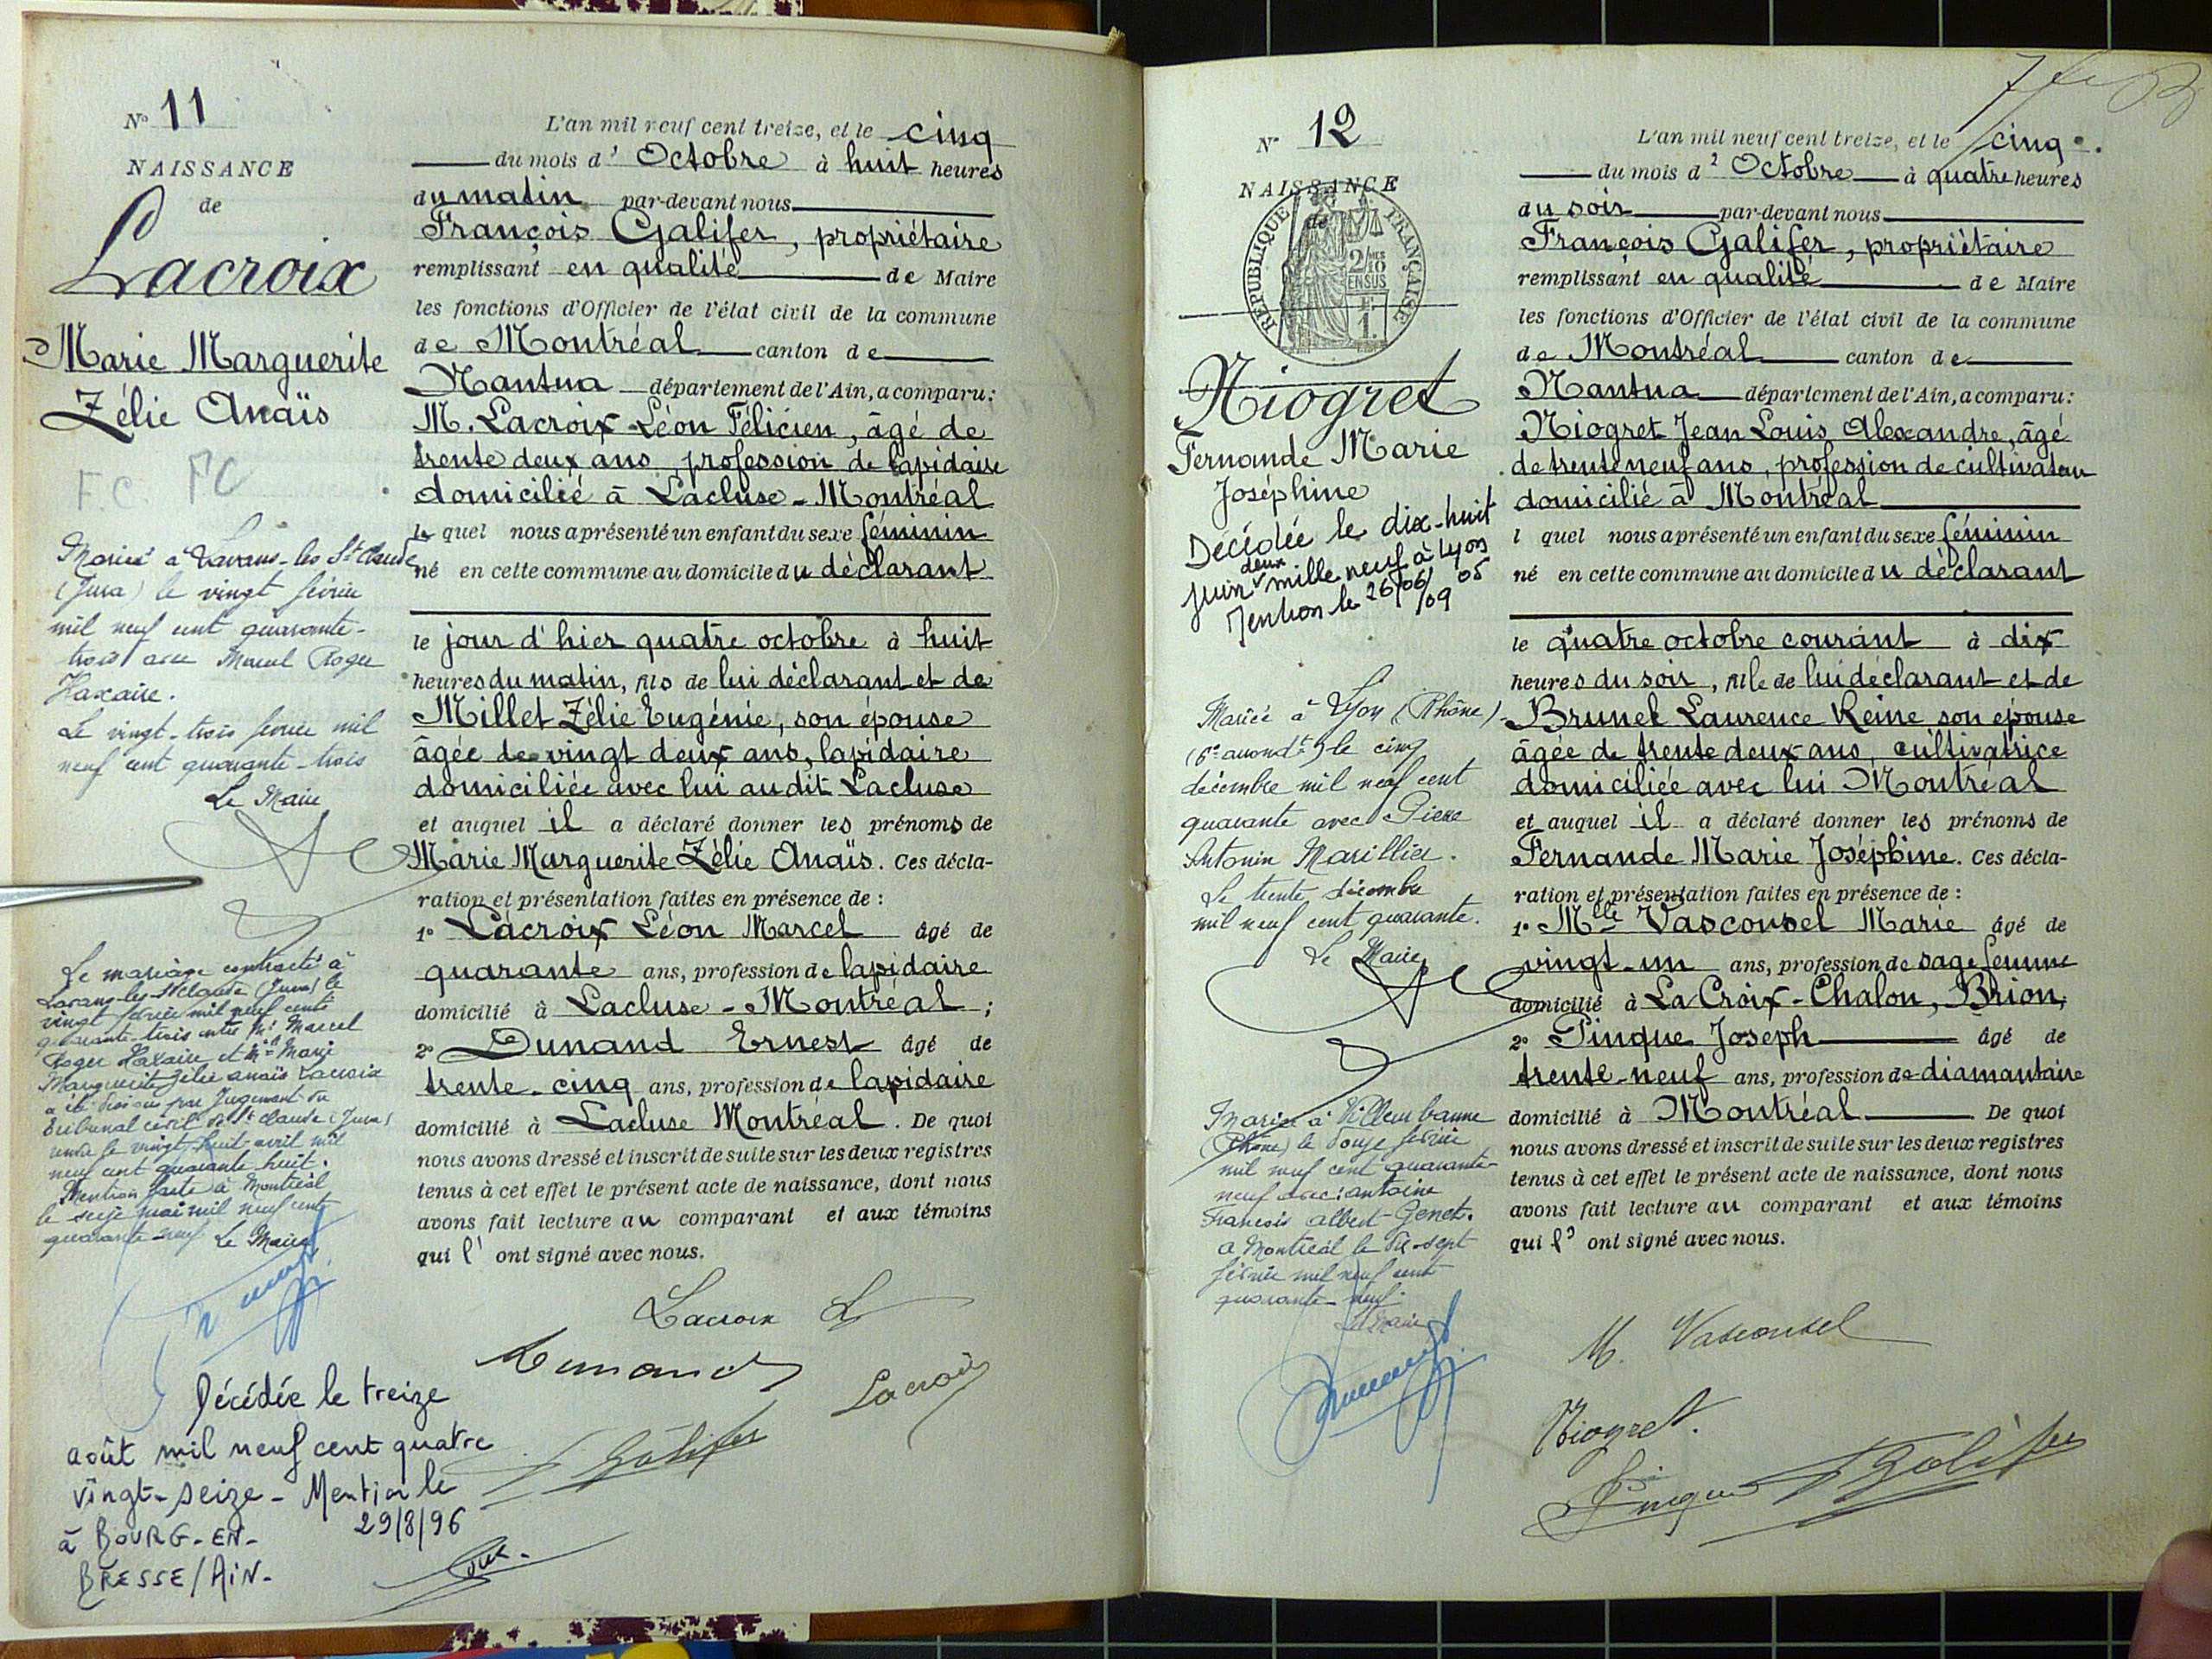 N° 11
NAISSANCE
de
Lacroix
Marie Marguerite
Zélie Anaïs
F.C. FC
Mariée à Lavans-les St Claude
(Jura) le vingt février
mil neuf cent quarante-
trois avec Marcel Roger
Haxaire.
Le vingt-trois février mil
neuf cent quarante-trois
Le Maire
Le mariage contracté à
Lavans-les-St Claude (Jura) le
vingt février mil neuf cent
quarante-trois entre Mr Marcel
Roger Haxaire et Mme Marie
Marguerite Zélie Anaïs Lacroix
a été dissous par Jugement du
Tribunal civil de St Claude (Jura)
rendu le vingt huit avril mil
neuf cent quarante huit.
Mention faite à Montréal
le seize mai mil neuf cent
quarante-neuf Le Maire
Décédée le treize
août mil neuf cent quatre
vingt-seize - Mention le
29/8/96
à BOURG-EN-
BRESSE/AIN-
L'an mil neuf cent treize, et le cinq
du mois d' Octobre à huit heures
du matin par-devant nous
François Galifer, propriétaire
remplissant en qualité de Maire
les fonctions d'Officier de l'état civil de la commune
de Montréal canton de
Nantua département de l'Ain, a comparu:
M. Lacroix Léon Félicien, âgé de
trente deux ans, profession de lapidaire
domicilié à Lacluse-Montréal
le quel nous a présenté un enfant du sexe féminin
né en cette commune au domicile du déclarant
le jour d'hier quatre octobre à huit
heures du matin, fils de lui déclarant et de
Millet Zélie Eugénie, son épouse
âgée de vingt deux ans, lapidaire
domiciliée avec lui audit Lacluse
et auquel il a déclaré donner les prénoms de
Marie Marguerite Zélie Anaïs. Ces décla-
ration et présentation faites en présence de :
1° Lacroix Léon Marcel âgé de
quarante ans, profession de lapidaire
domicilié à Lacluse-Montréal ;
2° Dunand Ernest âgé de
trente-cinq ans, profession de lapidaire
domicilié à Lacluse Montréal. De quoi
nous avons dressé et inscrit de suite sur les deux registres
tenus à cet effet le présent acte de naissance, dont nous
avons fait lecture au comparant et aux témoins
qui l' ont signé avec nous.
Lacroix L
Dunand
Lacroix
Galifer
N° 12
NAISSANCE
de
RÉPUBLIQUE FRANÇAISE
2/10
EN SUS
1 F.
Niogret
Fernande Marie
Joséphine
Décédée le dix-huit
juin deux mille neuf à Lyon 05
Mention le 26/06/09
Mariée à Lyon (Rhône)
(6e arrondt) le cinq
décembre mil neuf cent
quarante avec Pierre
Antonin Marillier.
Le trente décembre
mil neuf cent quarante.
Le Maire
Mariée à Villeurbanne
(Rhône) le douze février
mil neuf cent quarante-
neuf avec antoine
François albert Genet.
a Montréal le dix-sept
février mil neuf cent
quarante-neuf.
Le Maire
L'an mil neuf cent treize, et le cinq.
du mois d' Octobre à quatre heures
du soir par-devant nous
François Galifer, propriétaire
remplissant en qualité de Maire
les fonctions d'Officier de l'état civil de la commune
de Montréal canton de
Nantua département de l'Ain, a comparu:
Niogret Jean Louis Alexandre, âgé
de trente neuf ans, profession de cultivateur
domicilié à Montréal
l quel nous a présenté un enfant du sexe féminin
né en cette commune au domicile du déclarant
le quatre octobre courant à dix
heures du soir, fille de lui déclarant et de
Brunet Laurence Reine son épouse
âgée de trente deux ans, cultivatrice
domiciliée avec lui Montréal
et auquel il a déclaré donner les prénoms de
Fernande Marie Joséphine. Ces décla-
ration et présentation faites en présence de :
1° Mlle Vasconsel Marie âgé de
vingt-un ans, profession de sage femme
domicilié à La Croix-Chalon, Brion,
2° Pinque Joseph âgé de
trente-neuf ans, profession de diamantaire
domicilié à Montréal De quoi
nous avons dressé et inscrit de suite sur les deux registres
tenus à cet effet le présent acte de naissance, dont nous
avons fait lecture au comparant et aux témoins
qui l' ont signé avec nous.
M. Vasconsel
Niogret.
Pinque Galifer